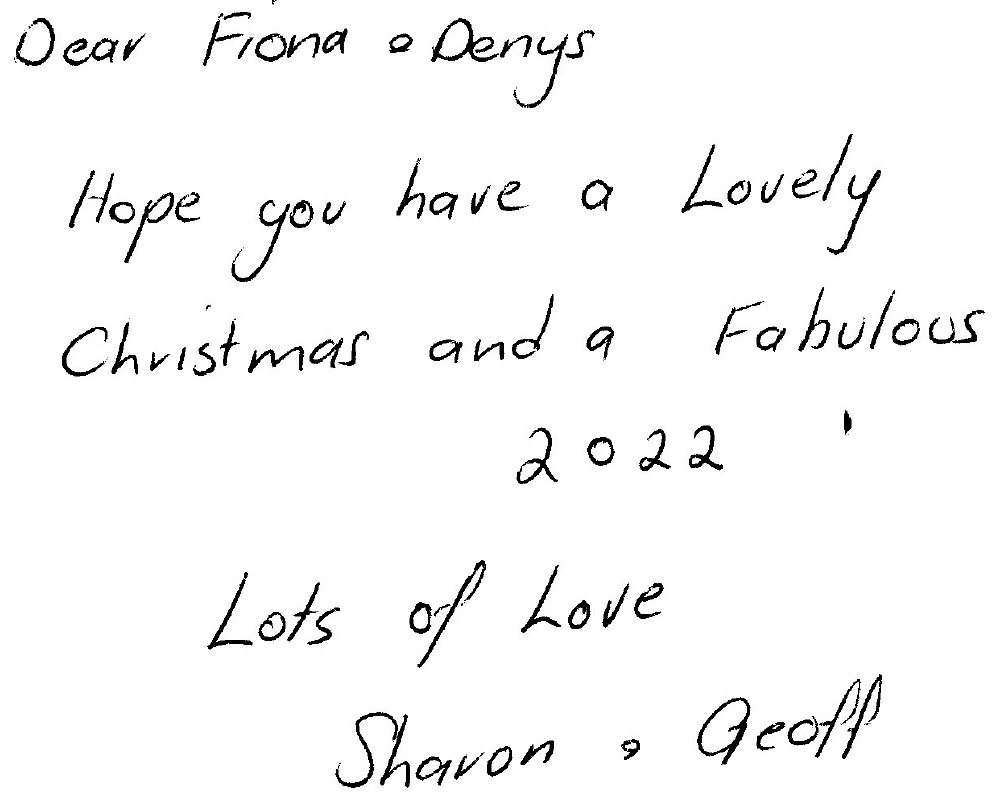 Dear Fiona & Denys
Hope you have a Lovely
Christmas and a Fabulous
2022
Lots of Love
Sharon & Geoff